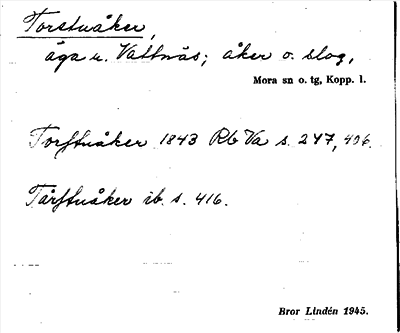 Torstuåker,
äga u. Vattnäs; åker o. slog,
Mora sn o. tg, Kopp. l.
Torstuåker 1843 Rb Va s. 247, 406.
Tårstuåker ib. s. 416.
Bror Lindén 1945.